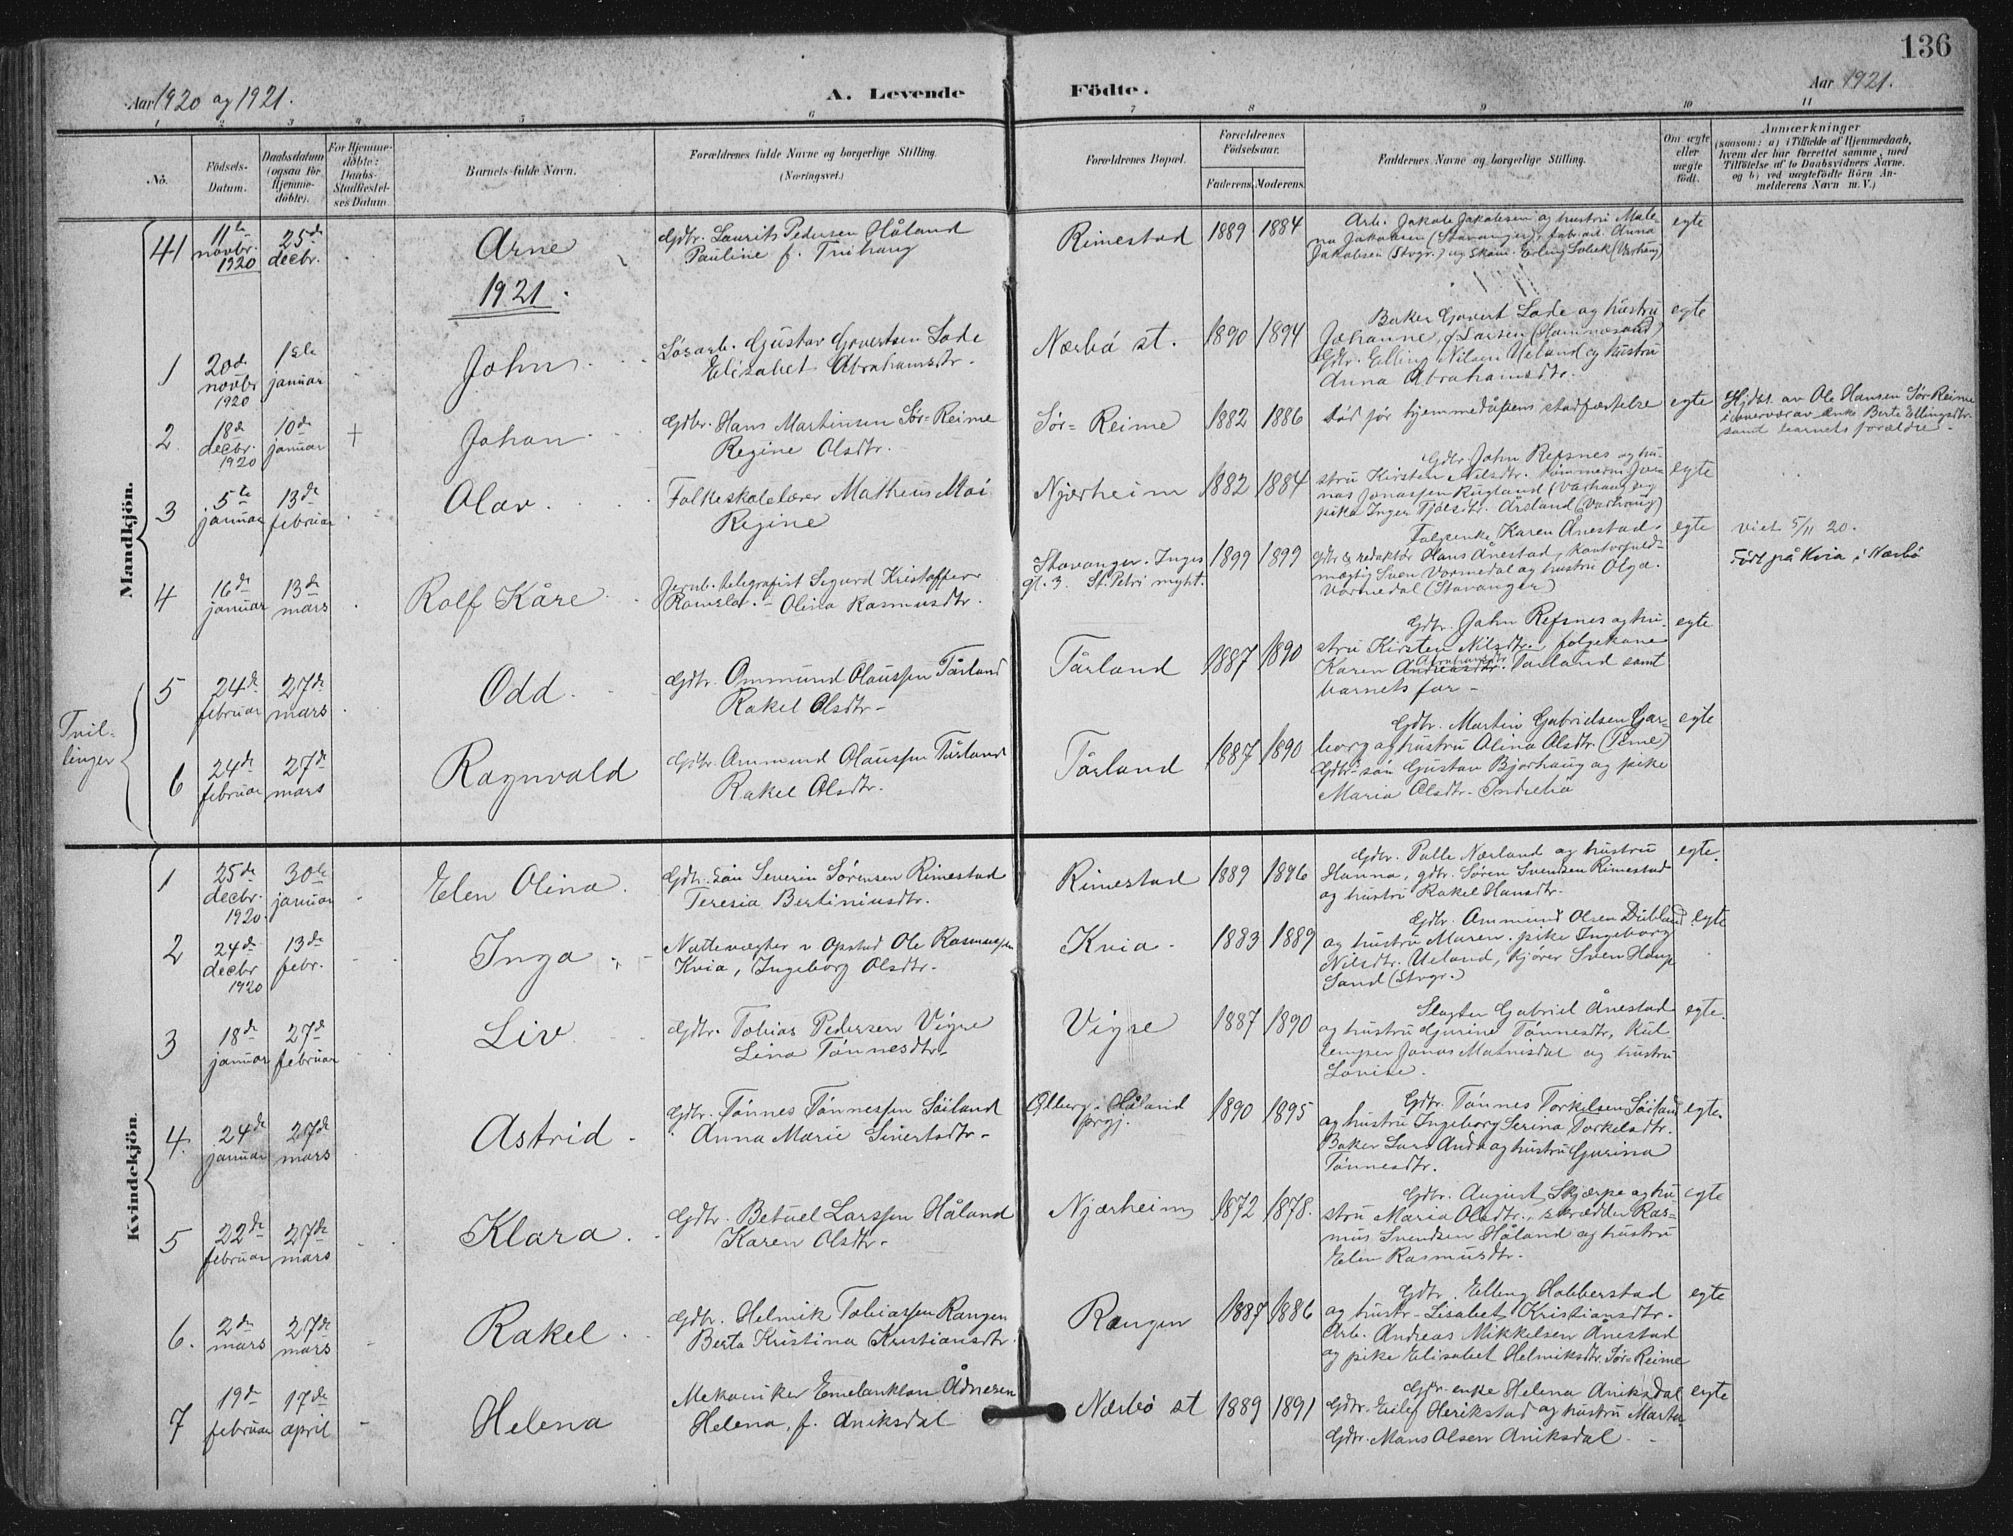 136
Aar 1920 og 1921.
A. Levende
Födte.
Aar 1921.
1 2 3 4 5 6 7 8 9 10 11
No.
Födsels-
Datum.
Daabsdatum
(ogsaa for
Hjemme-
döbte).
For Hjemme-
döbte:
Daabs-
Stadfæstel-
ses Datum.
Barnets fulde Navn.
Forældrenes fulde Navne og borgerlige Stilling.
(Næringsvei.)
Forældrenes Bopæl.
Forældrenes
Födselsaar.
Faderens. Moderens.
Faddernes Navne og borgerlige Stilling.
Om ægte
eller
uægte
födt.
Anmærkninger
(saasom: a) i Tilfælde af Hjemmedaab,
hvem der har forrettet samme, med
Tilföielse af to Daabsvidners Navne.
og b) ved uægtefödte Börn An-
melderens Navn m. V.)
Mandkjön.
41
11te
novbr.
1920
25de
decbr.
Arne
Gdbr. Laurits Pedersen Håland
Pauline f. Tuihaug
Rimestad
1889 1884
Arb. Jakob Jakobsen og hustru Male-
na Jakobsen (Stavanger), fabr.arb. Anna
Jakobsen (Stvgr.) og Skom. Erling Lobek (Varhaug)
egte
1921.
1
20de
novbr
1920
1ste
januar
John
Løsarb. Gustav Govertsen Lode
Elisabet Abrahamsdtr.
Nærbø st.
1890 1894
Baker Govert Lode og hustru
Johanne, f. Larsen (Hommersand)
Gdbr. Elling Nilsen Ueland og hustru
Anna Abrahamsdtr.
egte
2
18de
decbr.
1920
10de
januar
+
Johan
Gdbr. Hans Martinsen Sør-Reime
Regine Olsdtr.
Sør-Reime
1882 1886
død før hjemmedåpens stadfæstelse
egte
Hjdbt. av Ole Hansen Sør-Reime
i overvær av enke Berte Ellingsdtr.
samt barnets forældre
3
5te
januar
13de
februar
Olav
Folkeskolelærer Matheus Moi
Regine
Njærheim
1882 1884
Gdbr. John Refsnes og hu-
stru Kirsten Nilsdtr. Tømmerm. Jon-
nas Jonassen Rugland (Varhaug) og
pike Inger Tjølsdtr. Årsland (Varhaug)
egte
4
16de
januar
13de
mars
Rolf Kåre
Jernb. telegrafist Sigurd Kristoffer
Ramslot. - Olina Rasmusdtr.
Stavanger. Inges
gt. 3. St. Petri myht.
1899 1899
Folgeenke Karen Ånestad.
gdbr & redaktør Hans Ånestad, kontorfuld-
mægtig Sven Vormedal og hustru Olga.
Vormedal (Stavanger)
egte
viet 5/11 20.
Født på Kvia i Nærbø
Tvil-
linger
5
24de
februar
27de
mars
Odd
Gdbr. Ommund Olaussen Tårland
Rakel Olsdtr.
Tårland
1887 1890
Gdbr. John Refsnes og hu-
stru Kirsten Nilsdtr. folgekone
Karen Andreasdtr. Tårland samt
barnets far
egte
6
24de
februar
27de
mars
Ragnvald
Gdbr. Ommund Olaussen Tårland
Rakel Olsdtr.
Tårland
1887 1890
Gdbr. Martin Gabrielsen Gar-
borg og hustru Alina Olsdtr. (Time)
Gdbr. søn Gustav Bjorhaug og pike
Maria Olsdtr. Indrelia
egte
Kvindekjön.
1
25de
decbr.
1920.
30te
januar
Elen Olina.
Gdbr. søn Severin Sørensen Rimestad
Teresia Bertiniusdtr.
Rimestad
1889 1896
Gdbr. Palle Nærland og hustru
Hanna, gdbr. Søren Svendsen Rimestad
og hustru Rakel Hansdtr.
egte.
2
24de
decbr
1920
13de
febr.
Inga
Nattevægter v Opstad Ole Rasmussen
Kvia, Ingeborg Olsdtr.
Kvia
1883 1889
Gdbr. Ommund Olsen Dubland
og hustru Maren. pike Ingeborg
Nilsdtr. Ueland, kjører Sven Haup
Sand (Stvgr.)
egte
3
18de
januar
27de
februar
Liv
Gdbr. Tobias Pedersen Vigre
Lina Tønnesdtr.
Vigre
1887 1890
Slagter Gabriel Ånestad
og hustru Gurine Tønnesdtr, kul-
lemper Jonas Malmisdal og hustru
Lovise.
egte.
4.
24de
januar
27de
mars
Astrid
Gdbr. Tønnes Tønnessen Søiland
Anna Marie Sivertsdtr
Ølberg. Håland
prgj.
1890 1895
Gdbr. Tønnes Torkelsen Søiland
og hustru Ingeborg Serina Torkelsdtr.
Baker Lars Anda og hustru Gurina
Tønnesdtr.
egte.
5
22de
februar
27de
mars
Klara
Gdbr. Betuel Larssen Håland
Karen Olsdtr.
Njærheim
1872 1878.
Gdbr. August Skjærpe og hu-
stru Maria Olsdtr., skrædder Ras-
mus Svendsen Håland og hustru
Elen Rasmusdtr.
egte
6.
2de
mars
27de
mars
Rakel
Gdbr. Helmik Tobiassen Rangen
Berta Kristina Kristiansdtr.
Rangen
1887 1886
Gdbr. Elling Hobberstad
og hustr. Lisabet Kristiansdtr.
Arb. Andreas Mikkelsen Ånestad
og pike Elisabet Helmiksdtr. Sør-Reime
egte
7
19de
februar
17de
april
Helena
Mekaniker Emelankton Ådnesen
Helena, f. Aniksdal
Nærbø st
1889 1891
Gbr. enke Helena Aniksdal
Gdbr. Eilef Herikstad og hustru Marta
Gdbr. Mons Olsen Aniksdal.
egte